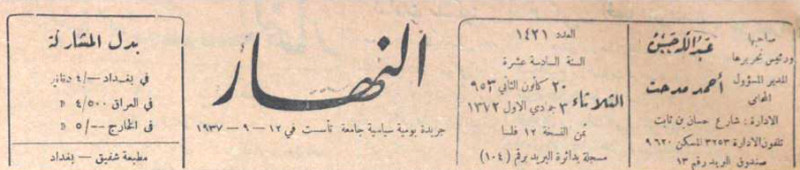 صاحبها
ورئيس تحريرها
عبدالله حسن
المدير المسؤول
المحامي
أحمد مدحت
الادارة : شارع حسان بن ثابت
تلفون الادارة ٣٢٥٣ المسكن ٩٦٢٠
صندوق البريد رقم ١٣
العدد ١٤٢١
السنة السادسة عشرة
الثلاثاء
٢٠ كانون الثاني ٩٥٣
٣ جمادي الاول ١٣٧٢
ثمن النسخة ١٢ فلسا
مسجلة بدائرة البريد برقم (١٠٤)
النهار
جريدة يومية سياسية جامعة تأسست في ١٢ – ٩ – ١٩٣٧
بدل المشاركة
في بغداد ٤/٠٠ دنانير
في العراق ٤/٥٠٠ »
في الخارج ٥/٠٠ »
مطبعة شفيق – بغداد